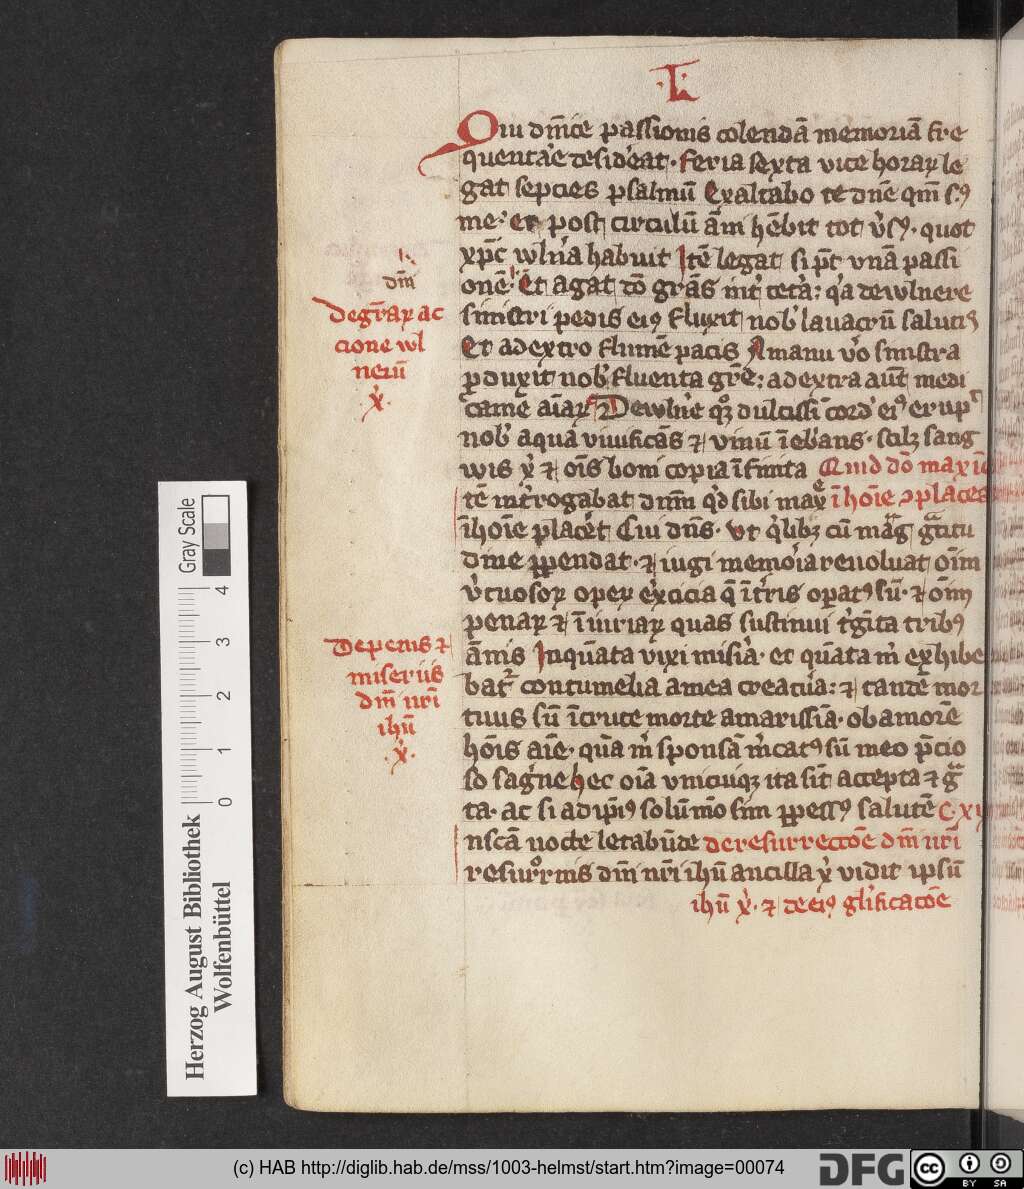 ·I·
Qui dn̄ice passionis colendā memoriā fre
quentare desiderat· feria sexta vice horaꝝ le
gat sepcies psalmū Exaltabo te dn̄e qm̄ sꝰ
me· Et post circulū ām hēbit tot v̓sꝰ· quot
xp̄c wln̓a habuit Itē legat si pt̄ vnā passi
onē· Et agat dō grās int̓ cetā: q̓a de wlnere
sinistri pedis eiꝰ fluxit nob̓ lauacrū salutis
Et a dextro flumē pacis A manu v̓o sinistra
ꝓduxit nob̓ fluenta grē: a dextra aūt medi
camē aīaꝝ De wln̓e qꝫ dulcissi cord̓ eiꝰ erup̓
nob̓ aqua viuificās ⁊ vinū īeb̓ans· scilꝫ sang
wis x̓ ⁊ oīs boni copia īfinita Quid dō maxīe
tē int̓rogabat dnm̄ qd̓ sibi max̓ī hoīe ꝯplacet
ī hoīe placet Cui dn̄s· vt q̓libꝫ cū mag̓ g̓titu
dine ꝑpendat· ⁊ iugi memoīa reuoluat oīm
v̓tuosoꝝ opeꝝ ex̓cicia q̄ ī t̓ris op̓atꝰ sū· ⁊ oīm
penaꝝ ⁊ īiuriaꝝ quas sustinui t̓gīta tribꝰ
ānis Inquāta vixi mis̓ia· et quāta m̓ exhibe
bat̓ contumelia a mea creat̓a: ⁊ tandē mor
tuus sū ī cruce morte amarissīa· ob amorē
hoīs aīe· quā m̓ sponsā m̓catꝰ sū meo p̄cio
so sag̓ne hec oīa vnicuiqꝫ ita sīt accepta ⁊ g̓
ta· ac si ad ip̄iꝰ solūmō sim ꝑpessꝰ salutē C· xx
n scā nocte letabūde de resurrectōe dn̄i nr̄i
resur̓onis dn̄i nr̄i ihū ancilla x̓ vidit ipsū
ihū x̓· ⁊ de eiꝰ gl̓ificatōe
dn̄i
De gr̄aꝝ ac
cione wl
nerū
x̓·
De penis ⁊
miseriis
dn̄i nr̄i
ihū
·x̓·
Gray Scale
0 1 2 3 4
Herzog August Bibliothek
Wolfenbüttel
(c) HAB http://diglib.hab.de/mss/1003-helmst/start.htm?image=00074
DFG
cc BY SA